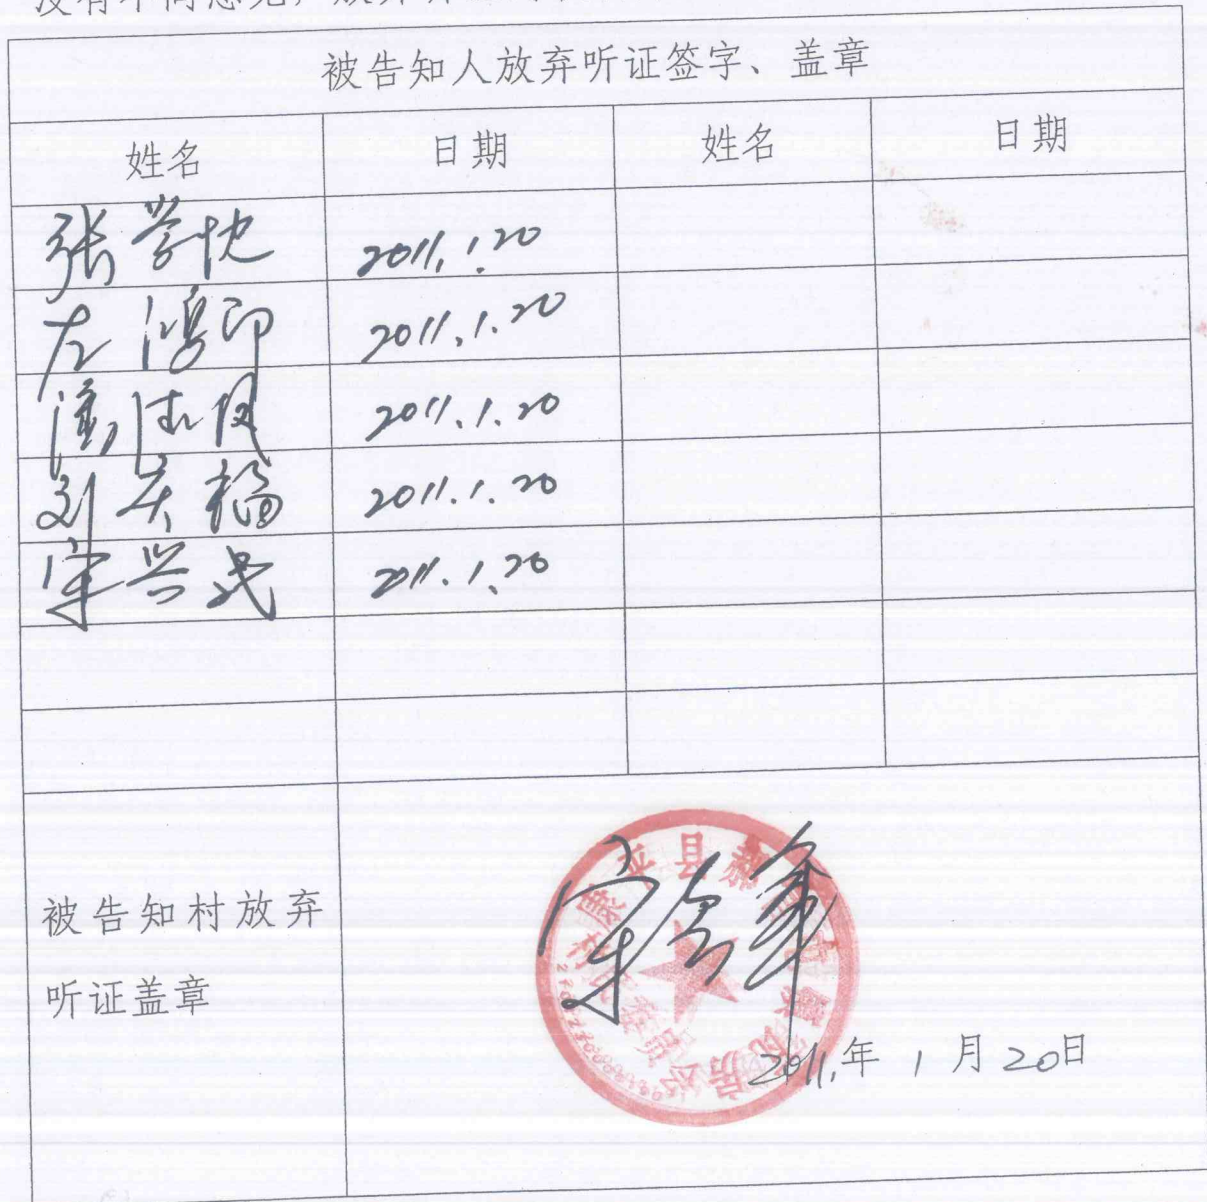 被告知人放弃听证签字、盖章
姓名 日期 姓名 日期
张学忱 2011.1.20
左鸿印 2011.1.20
2011.1.20
刘天福 2011.1.20
宋兴武 2011.1.20
被告知村放弃
听证盖章
康平县郝
2011.年 1 月 20日